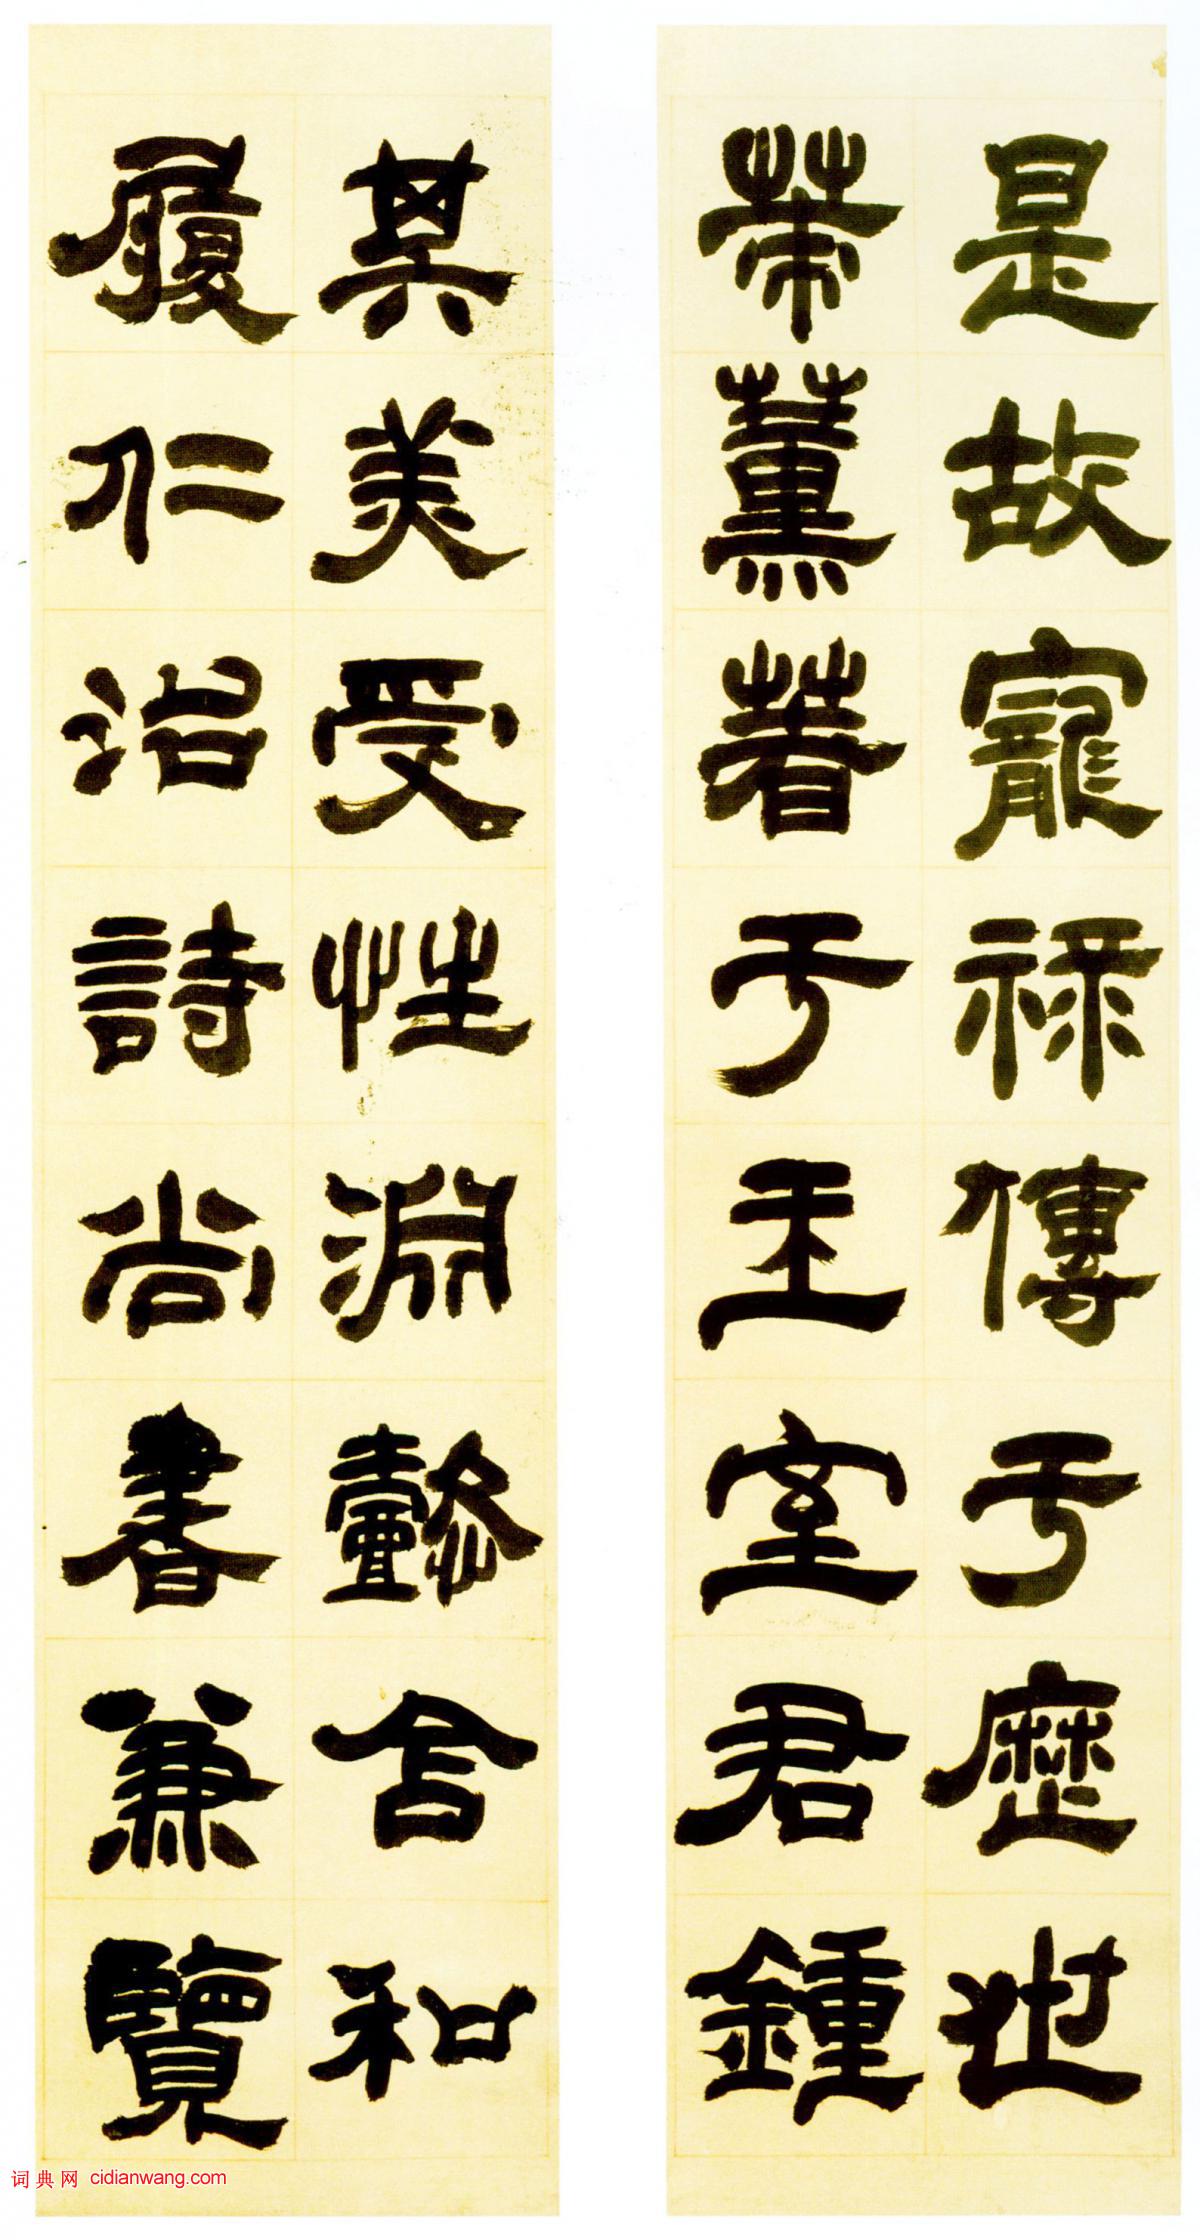 是故寵祿傳于歷世
策薰著于王室君鍾
其美受性淵懿含和
履仁治詩尚書兼覽
词典网 cidianwang.com